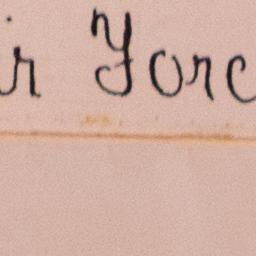 ir Forc